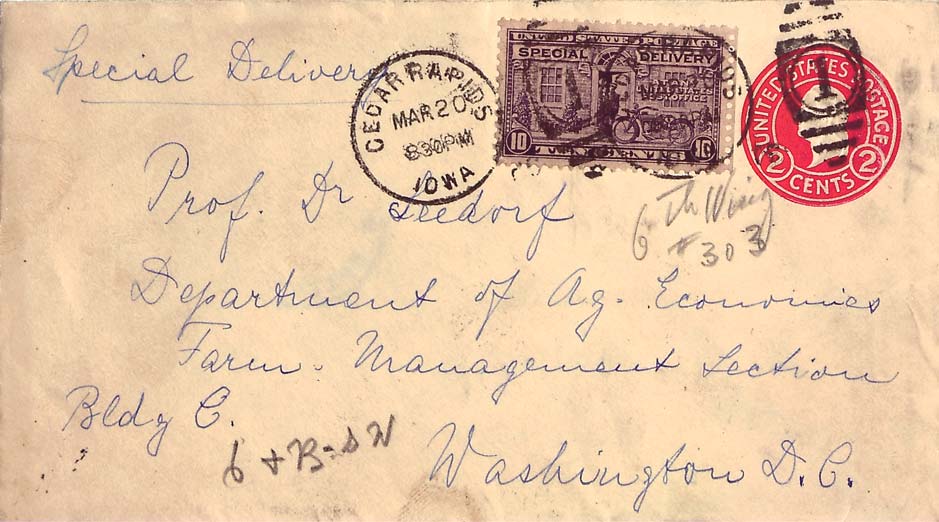 Special Delivery
CEDAR RAPIDS
MAR 20
830PM
IOWA
UNITED STATES POSTAGE
SPECIAL DELIVERY
10 TEN CENTS 10
UNITED STATES POSTAGE
1
2 CENTS 2
Prof. Dr Seedorf
6 Th Wing
#303
Department of Ag. Economics
Farm. Management Section
Bldg C.
6 + B-SW
Washington D.C.